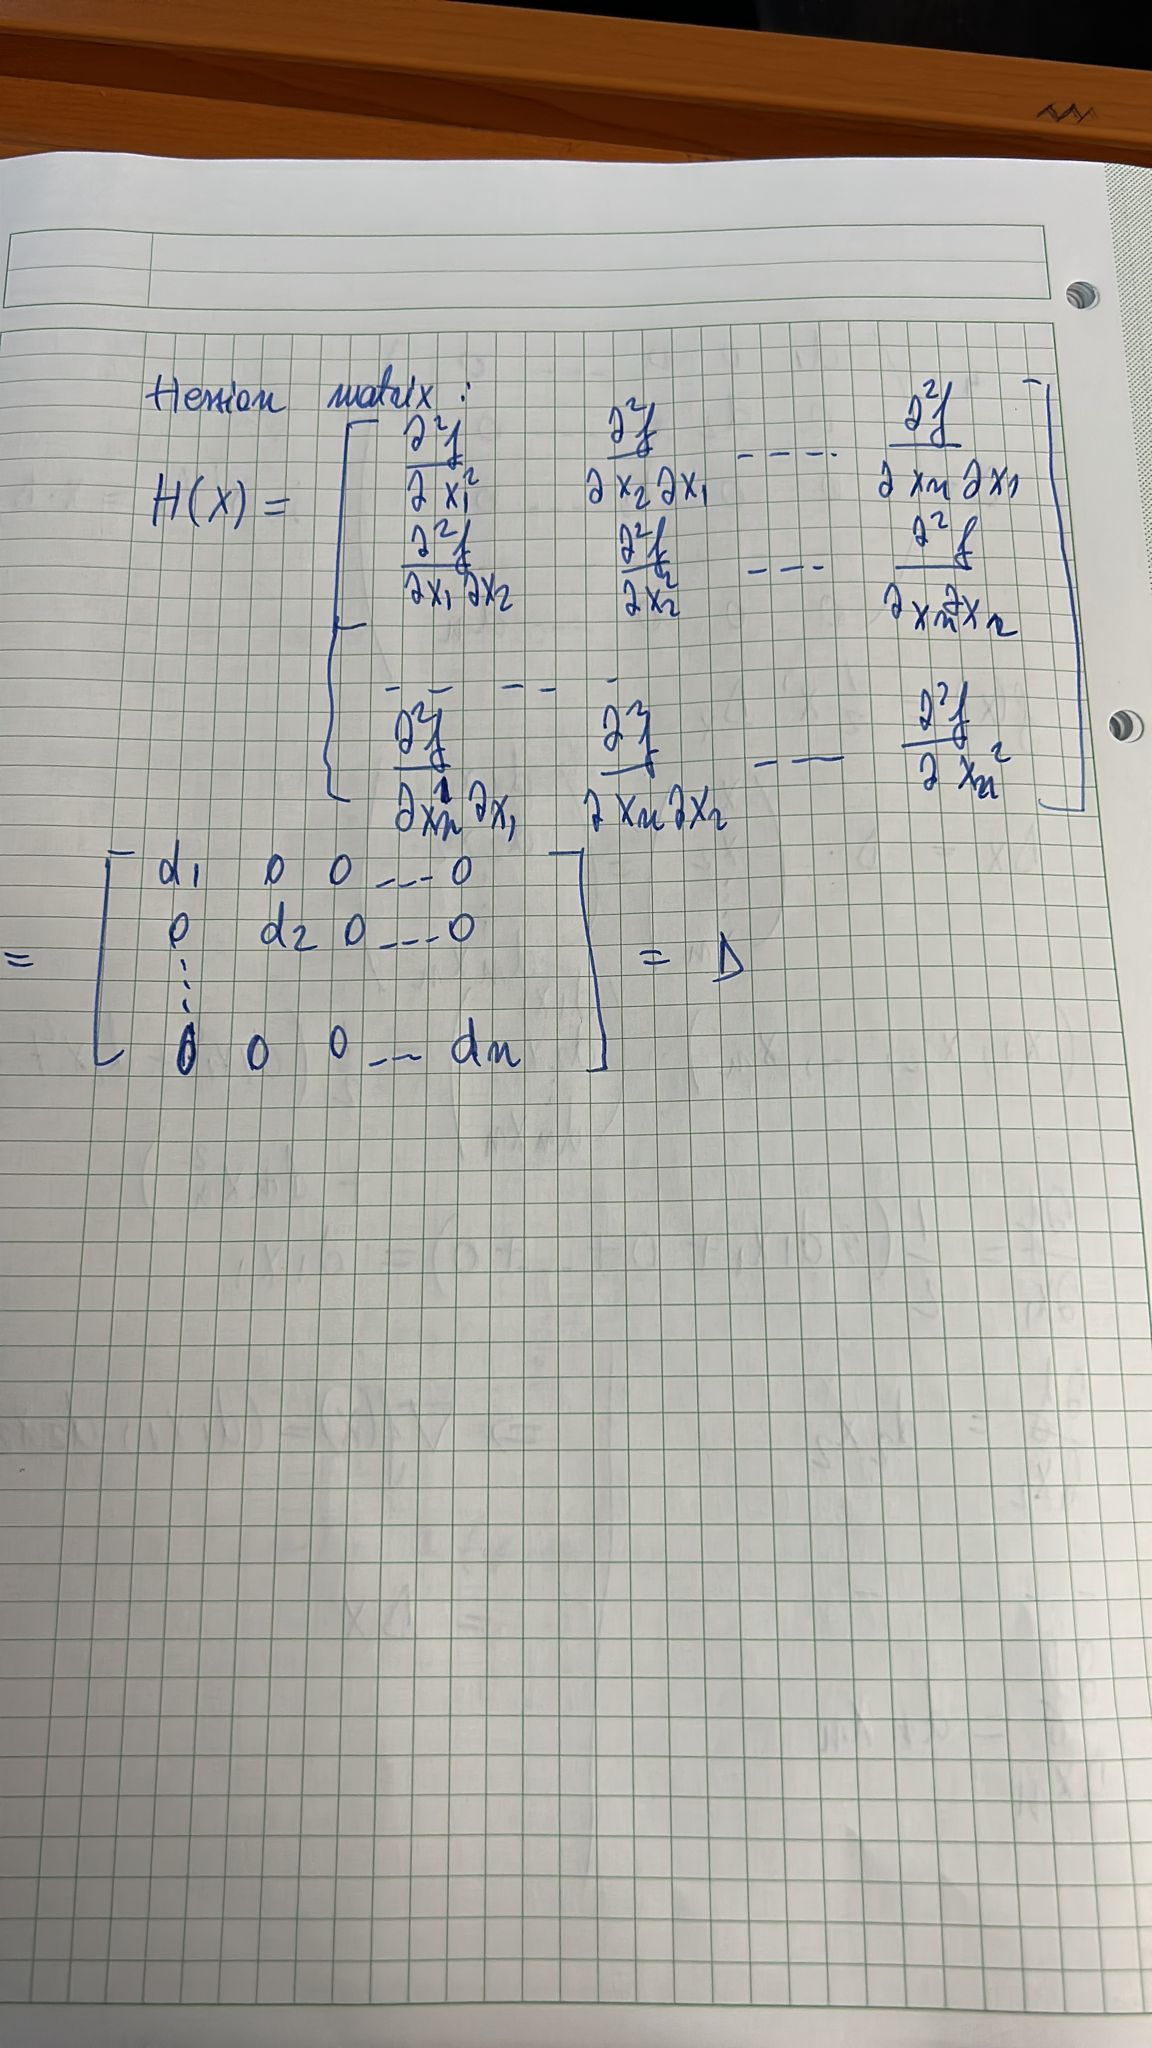 Hessian matrix:
H(x) = [ ∂²f/∂x₁² ∂²f/∂x₂∂x₁ ---- ∂²f/∂xₙ∂x₁
∂²f/∂x₁∂x₂ ∂²f/∂x₂² --- ∂²f/∂xₙ∂x₂
- - -- -
∂²f/∂x₁∂xₙ ∂²f/∂xₙ∂x₂ -- ∂²f/∂xₙ² ]
= [ d₁ 0 0 --- 0
0 d₂ 0 --- 0
⋮
0 0 0 -- dₙ ] = D